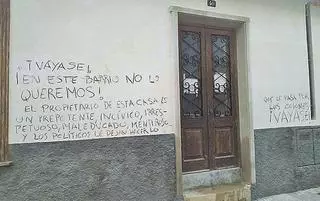 ¡VÁYASE!
¡EN ESTE BARRIO NO LO
QUEREMOS!
EL PROPIETARIO DE ESTA CASA ES
UN PREPOTENTE, INCÍVICO, IRRES-
PETUOSO, MALEDUCADO, MENTIROSO...
Y LOS POLÍTICOS LE DEJAN HACERLO
QUE LE PASA POR
LOS COJONES
¡VÁYASE!